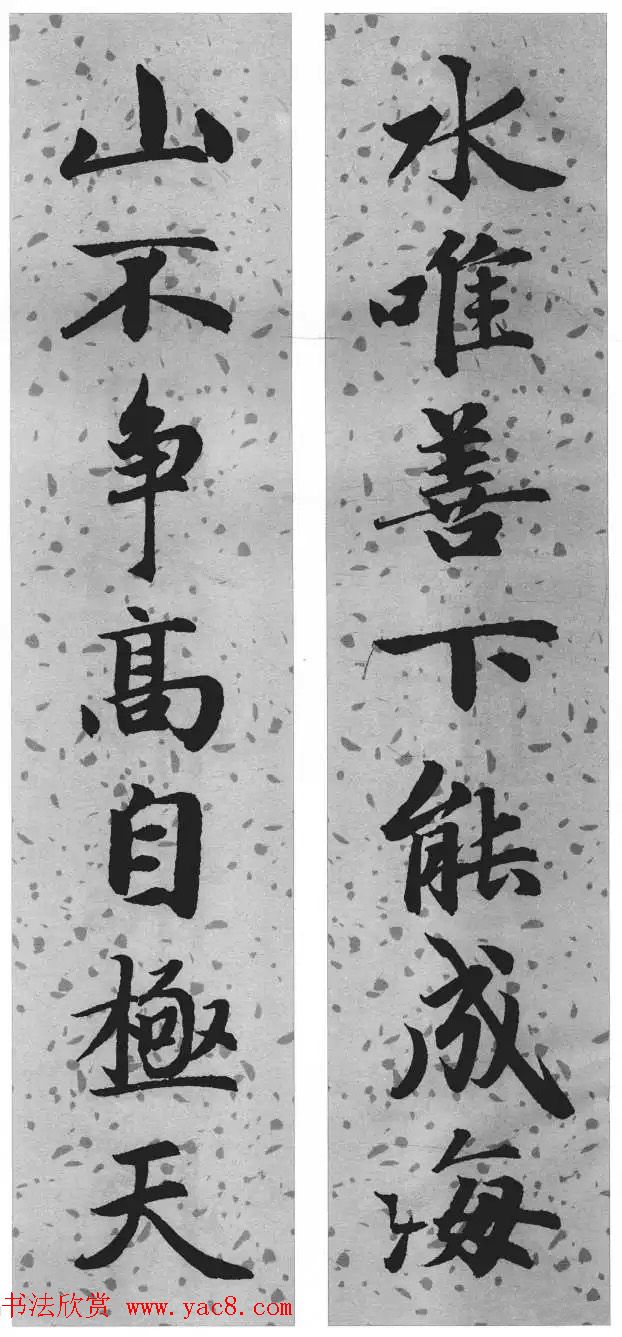 水唯善下能成海
山不争高自極天
书法欣赏 www.yac8.com